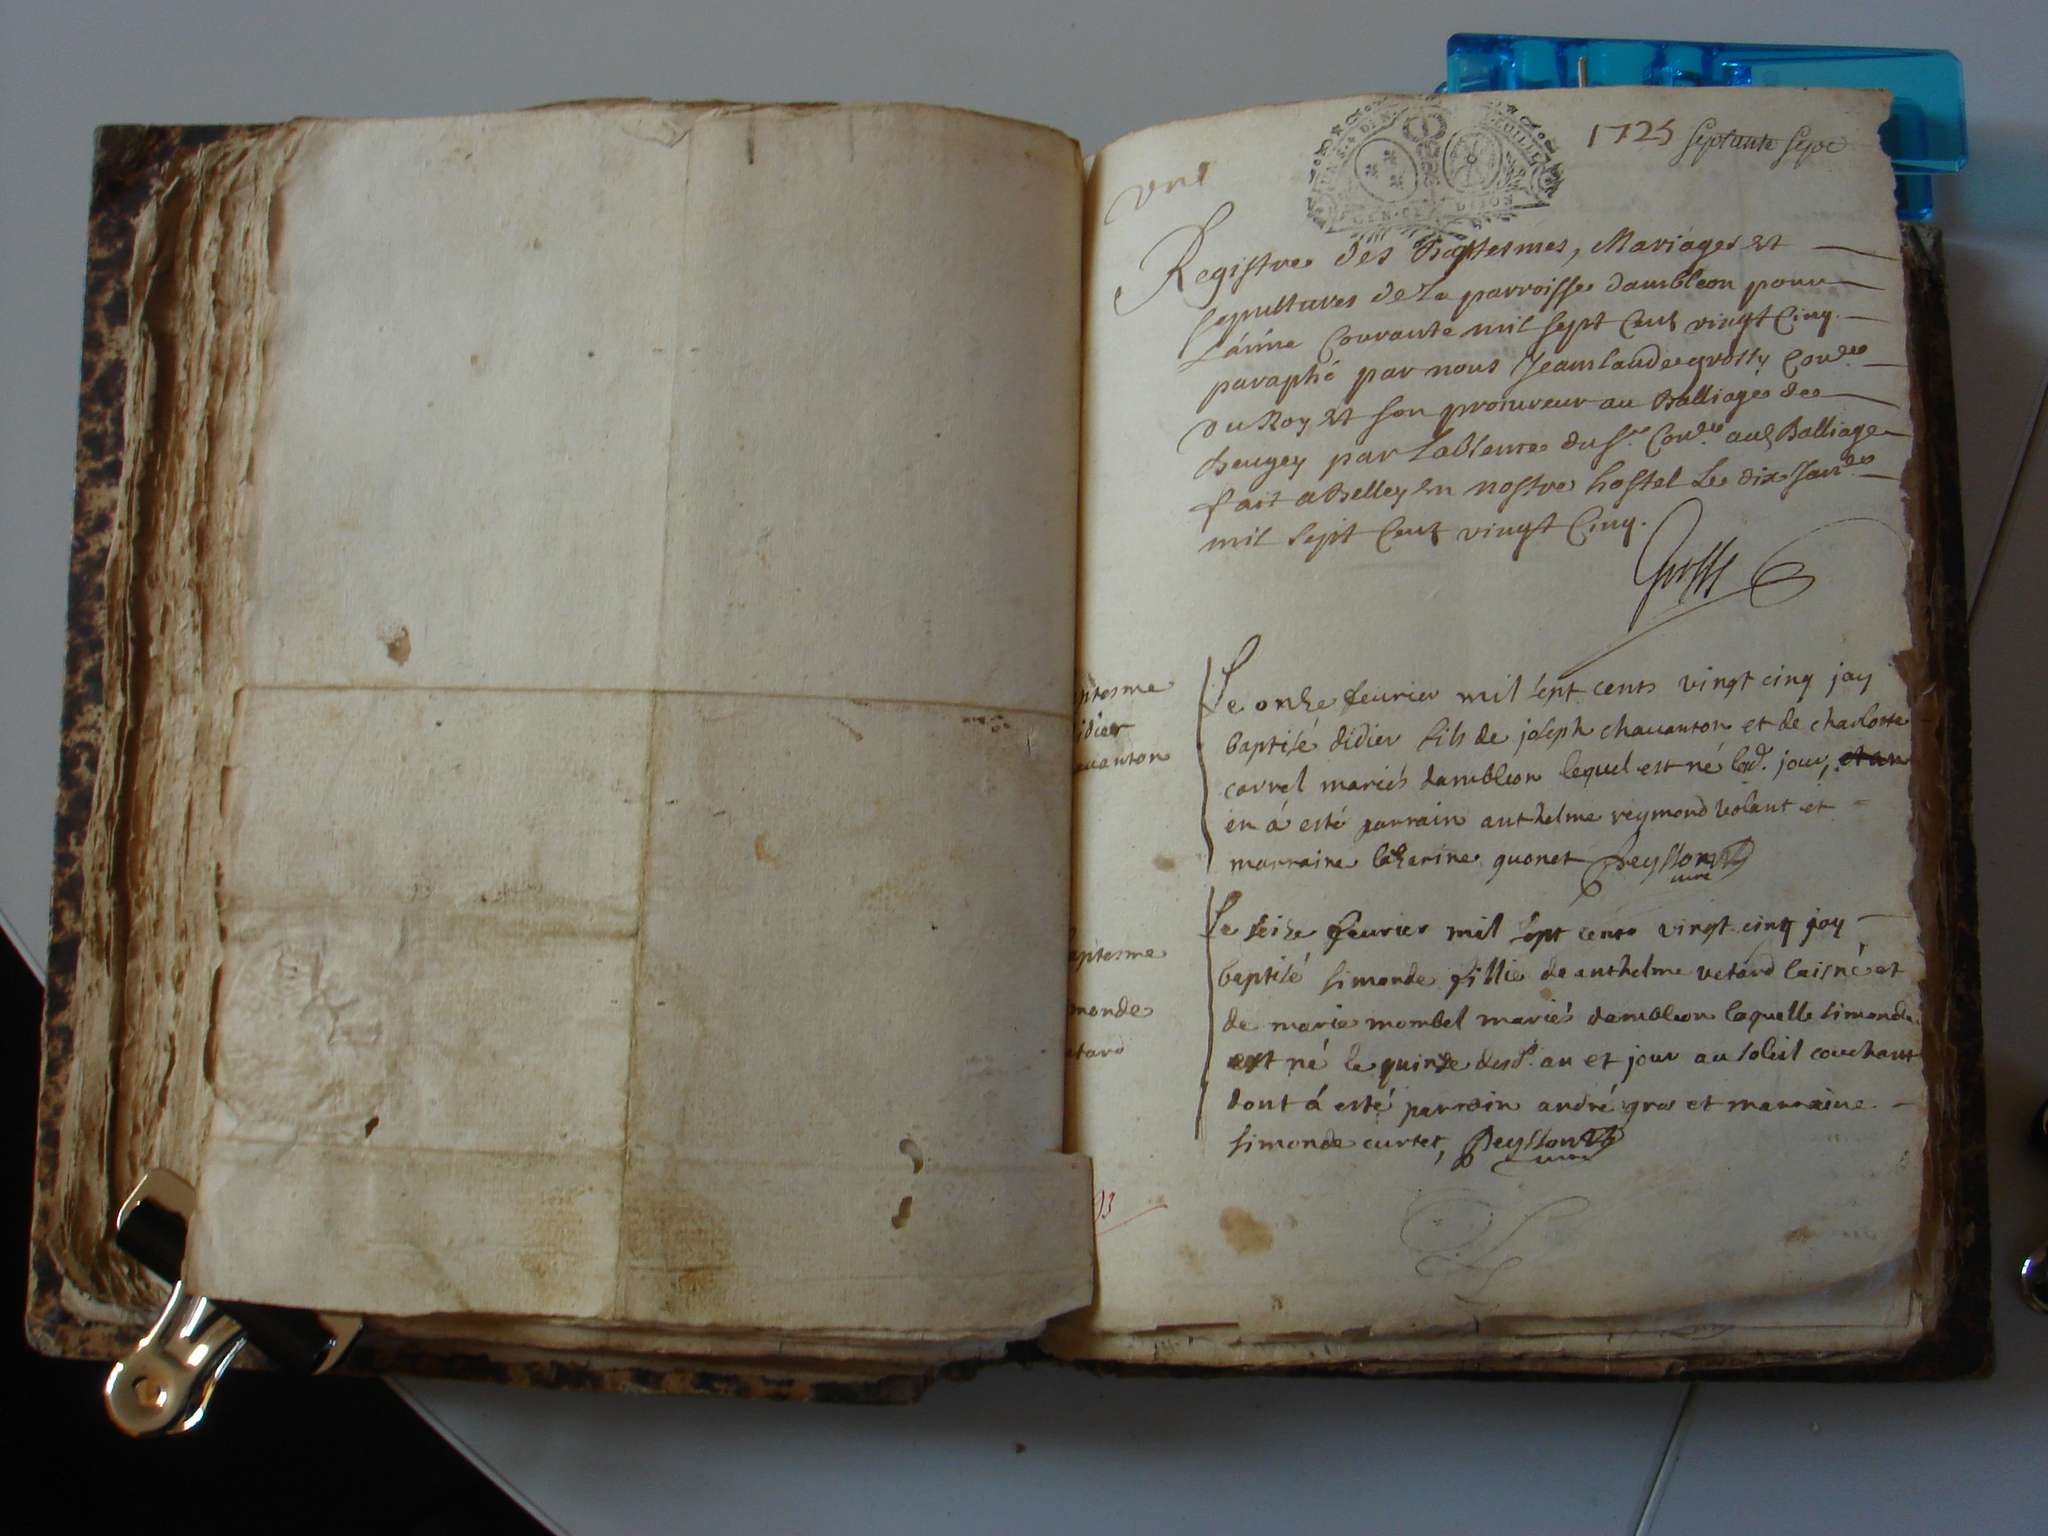 1725 septante sept
une
Registre des Baptesmes, Mariages et
sepultures de la parroisse dambleon pour
lanné Courante mil sept Cent vingt Cinq
paraphé par nous Jeanclaude grossy Con.er
du Roy et son procureur au Balliage de
Beugey par labsence du S.r Con.er aud Balliage
fait a Belley en nostre hostel le dix Jan.er
mil sept Cent vingt Cinq.
Grossy
ptesme
idier
auanton
Le onze feurier mil sept cents vingt cinq jay
baptisé didier fils de joseph chauanton et de charlotte
carrel mariés dambleon lequel est né led. jour,
en á esté parrain anthelme reymond volant et
marraine catherine guonet Peysson
curé
aptesme
monde
etard
Le seize feurier mil sept cents vingt cinq jay
baptisé simonde fillie de anthelme vetard laisné et
de marie mombel mariés dambleon laquelle simonde
est né le quinze desd. an et jour au soleil couchant
dont á esté parrain andré gros et marraine
simonde curtet, Peysson
curé
93